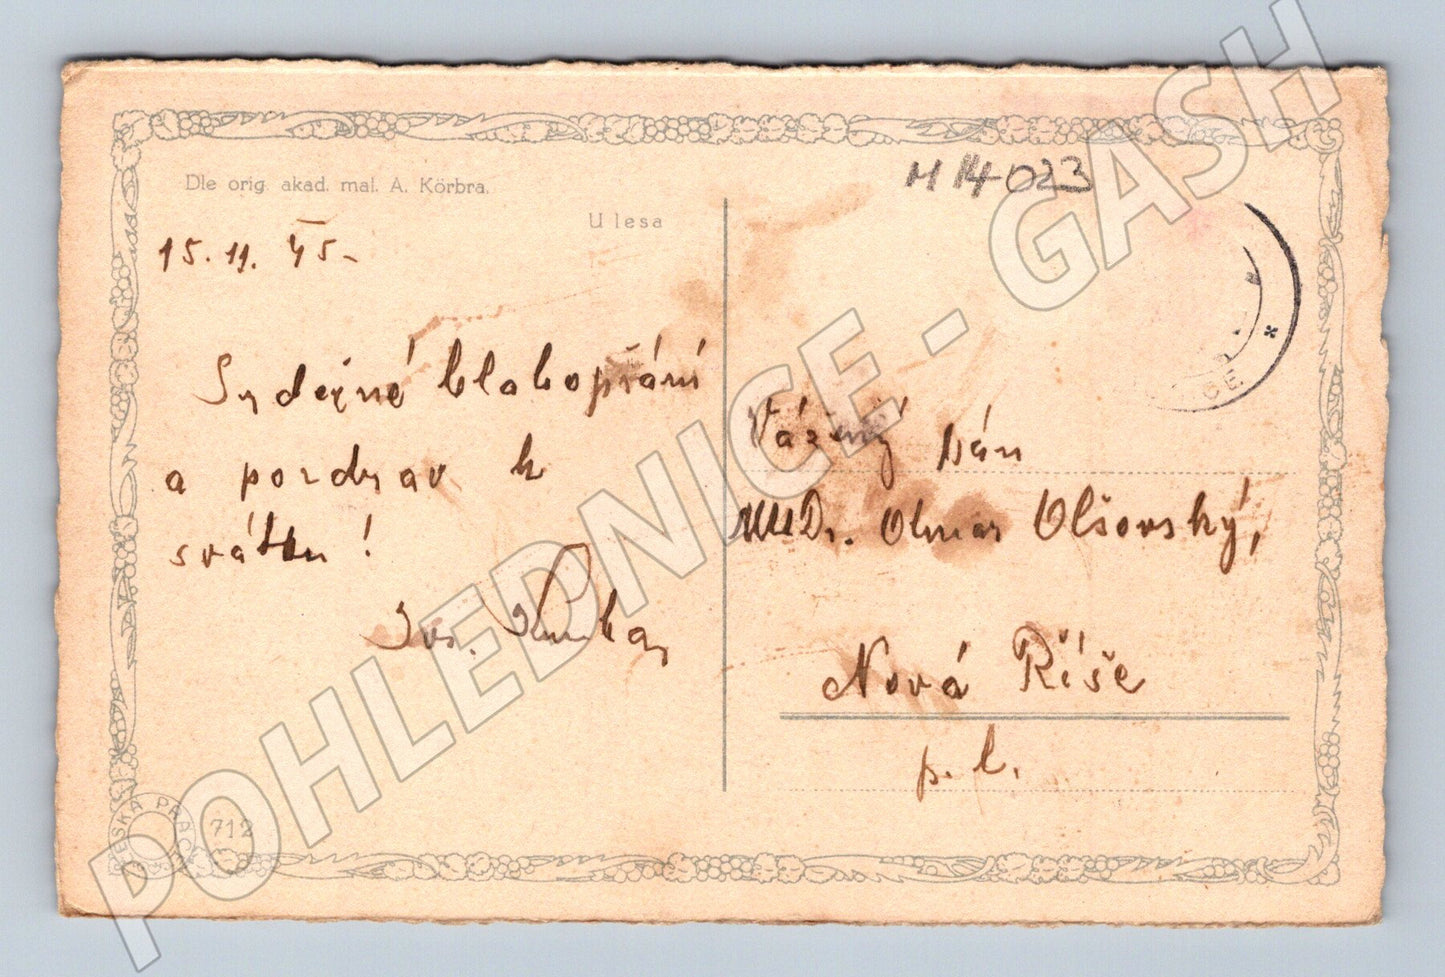 Dle orig. akad. mal. A. Körbra.
U lesa
M 14 023
15. 11. 45.
Srdečné blahopřání
a pozdrav k
svátku!
Vážený pán
MUDr. Otmar Olšovský,
Nová Říše
p. t.
ČESKÁ PRÁCE
712
POHLEDNICE - GASH